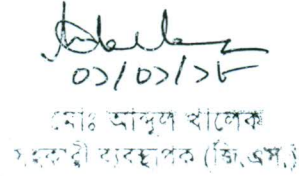 ০১/০১/১৮
মোঃ আব্দুল খালেক
সহকারী ব্যবস্থাপক (জি.এস.)